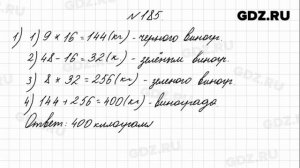 GDZ.RU
№ 185
1) 1) 9 × 16 = 144 (кг) - черного виногр.
2) 48 - 16 = 32 (к) - зелёным виногр
3) 8 × 32 = 256 (кг) - зеленого виногр.
4) 144 + 256 = 400 (кг) - винограда
Ответ: 400 килограмм